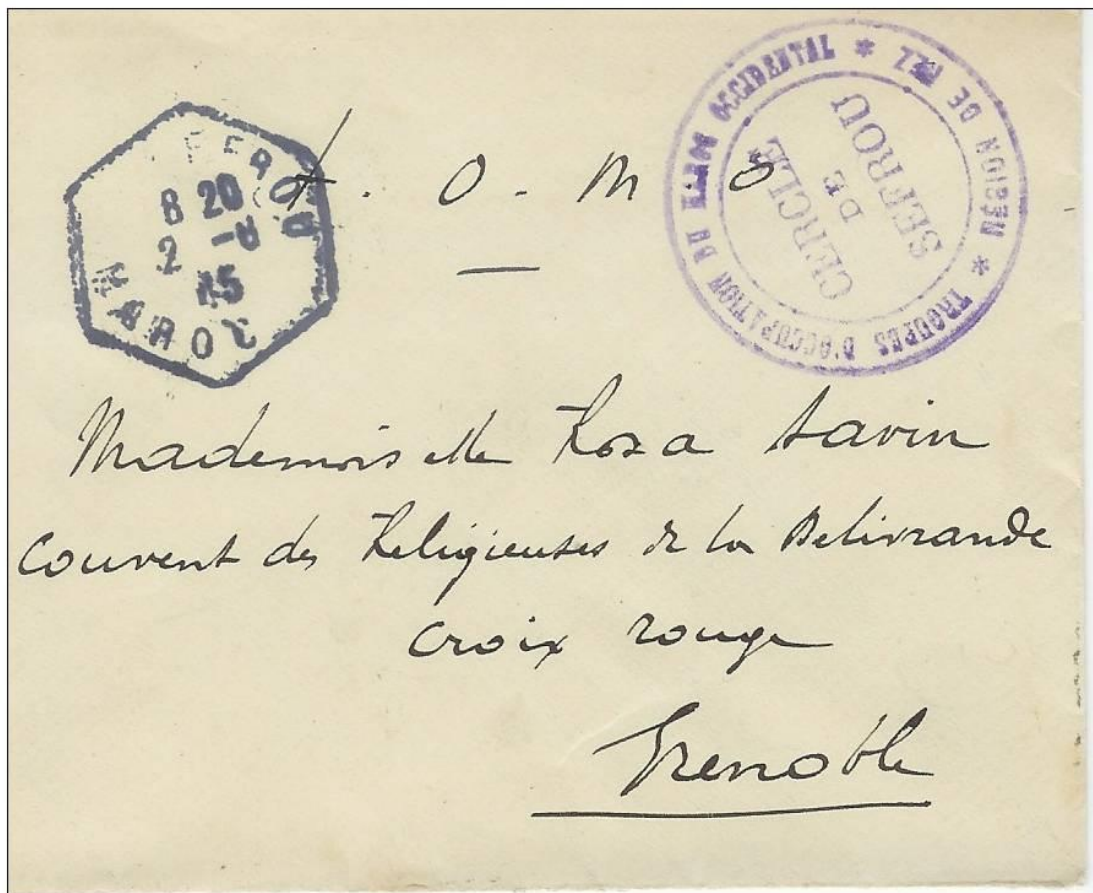 8 20
2 -8
15
MAROC
O - M O
TROUPES D'OCCUPATION DU MAROC OCCIDENTAL * REGION DE FEZ *
CERCLE
DE
SEFROU
Mademoiselle Roza
Couvent des Religieuses de la Delivrande
Croix rouge
Grenoble